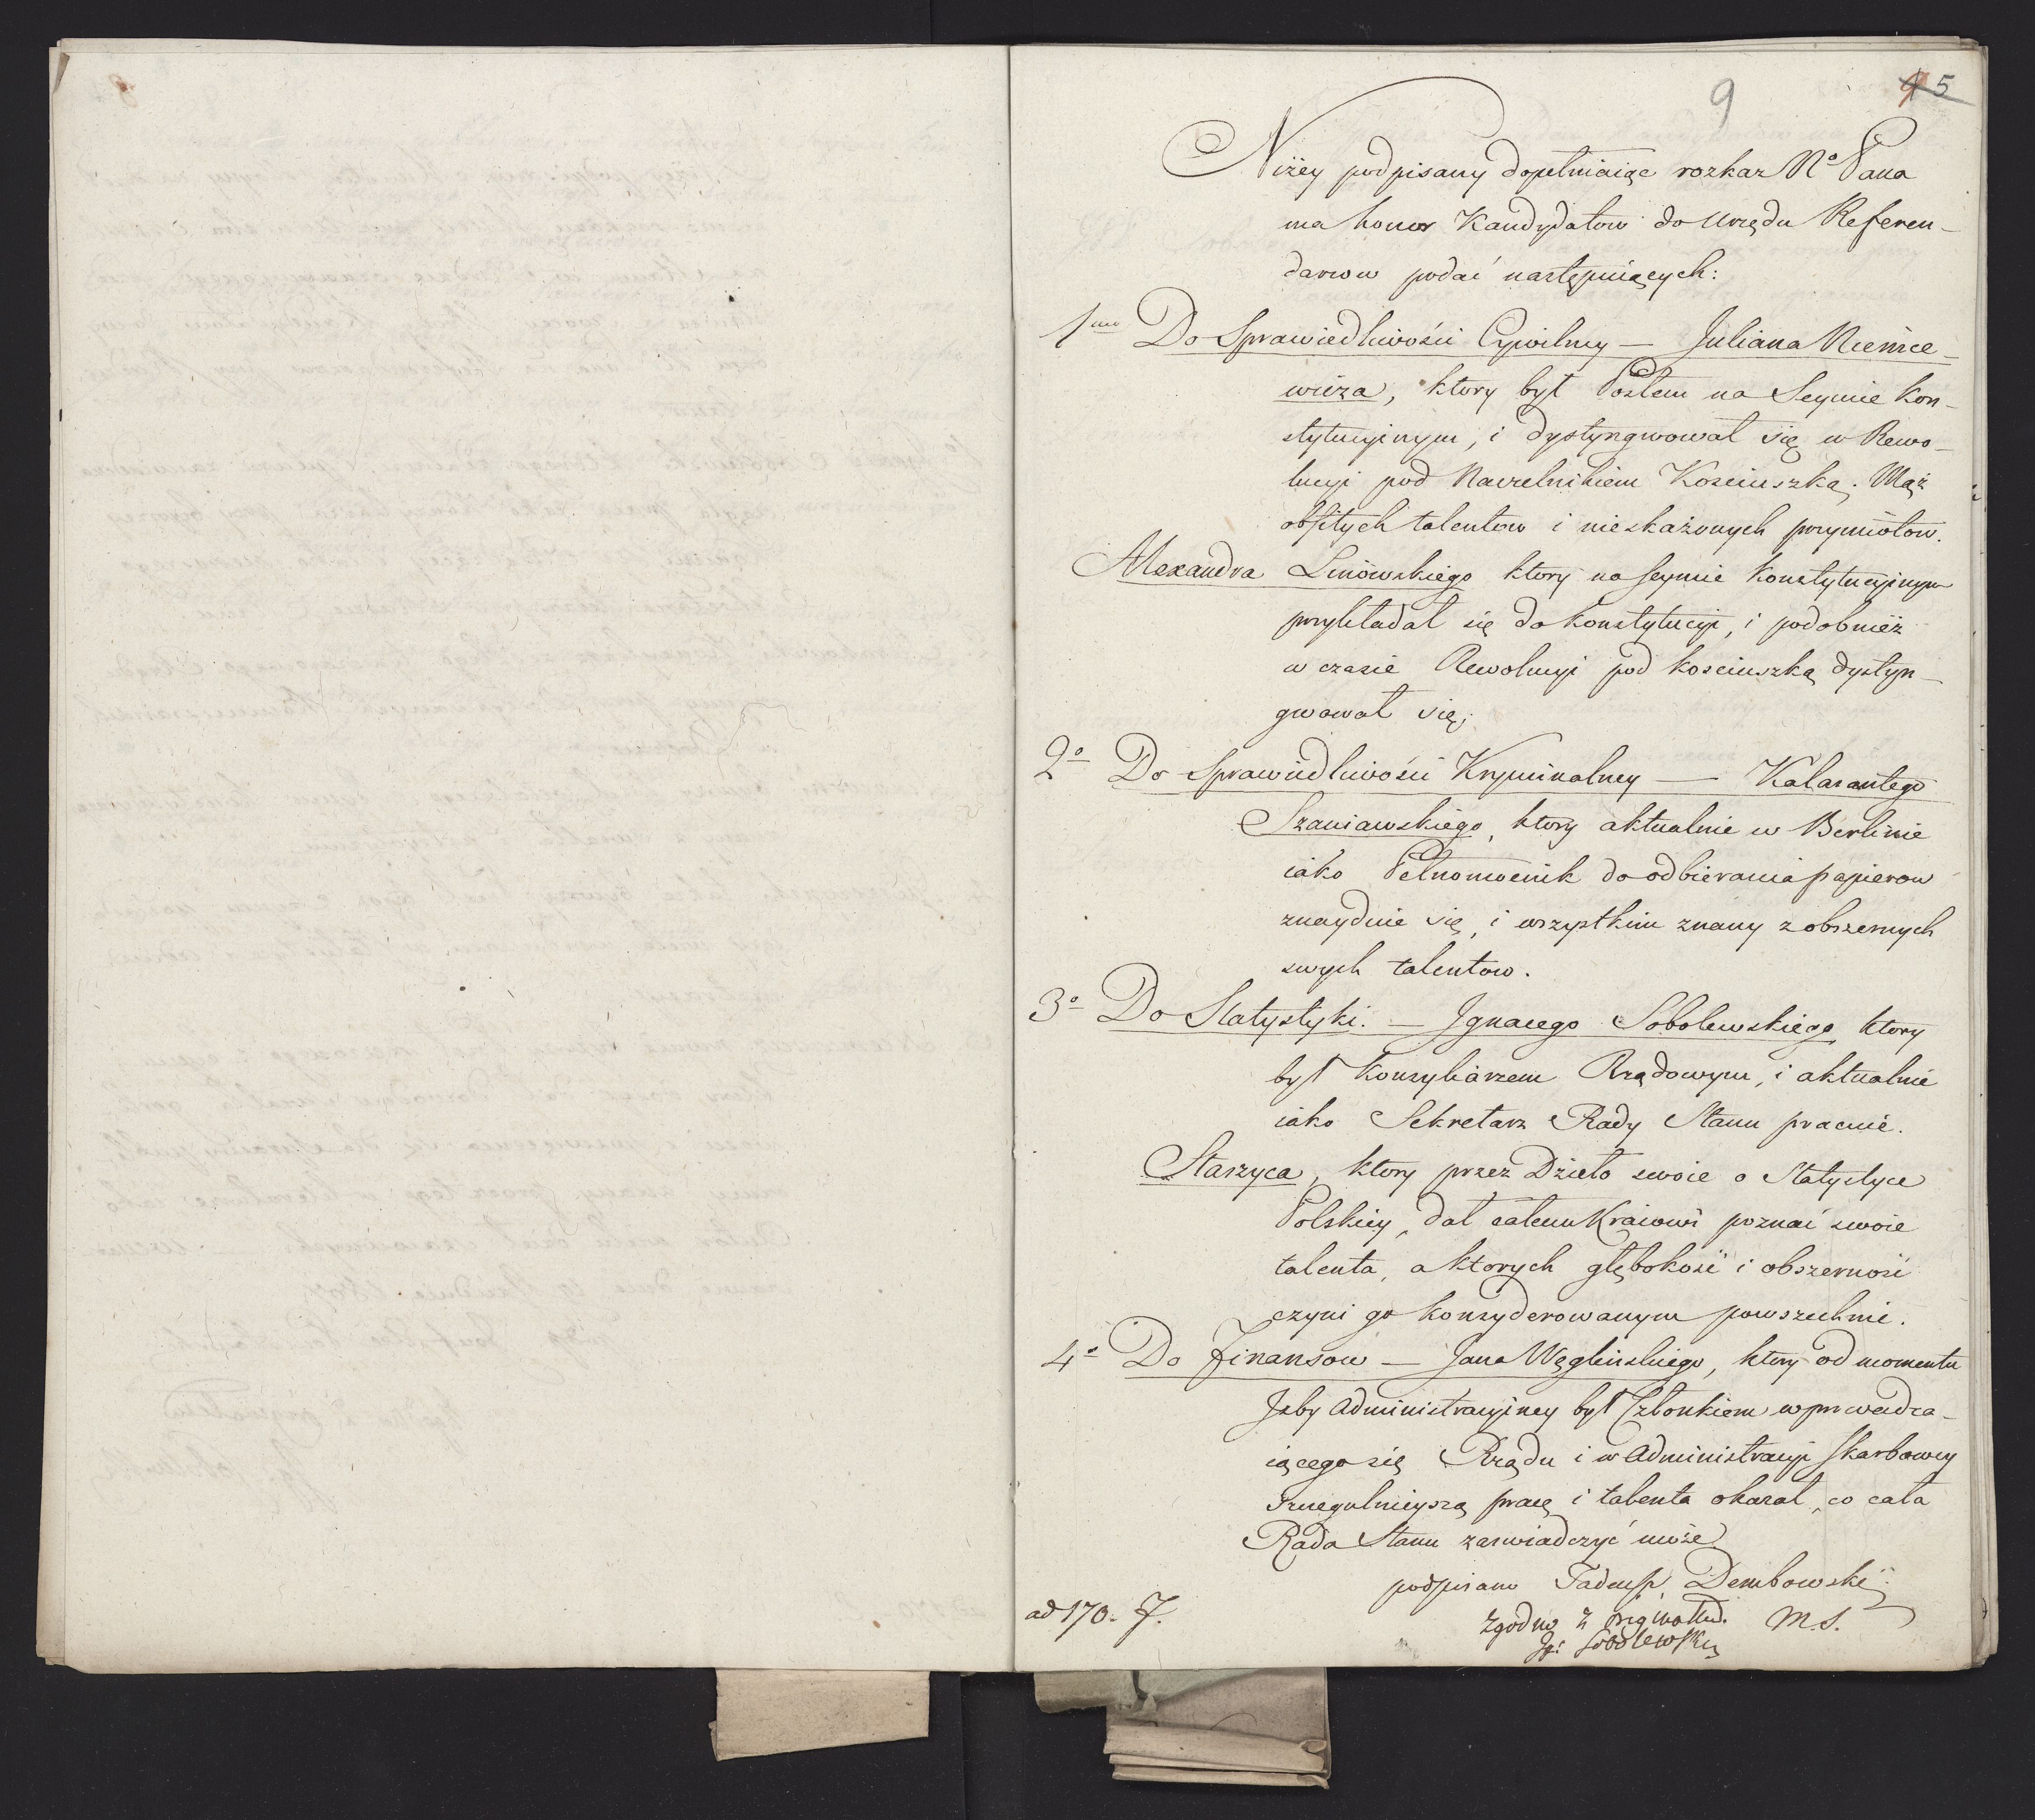 9
5
Niżey podpisany dopełniaiąc rozkaz No Pana
ma honor Kandydatow do urzędu Referen-
darzow podać następuiących:
1mo Do Sprawiedliwości Cywilney — Juliana Niemce-
wicza, ktory był Posłem na Seymie Kon-
stytucyinym, i dystyngwował się w Rewo-
lucyi pod Naczelnikiem Kosciuszką. Mąż
obfitych talentow i nieskażonych przymiotow.
Alexandra Linowskiego ktory na seymie Konstytucyinym
przykładał się do Konstytucyi, i podobnież
w czasie Rewolucyi pod Kosciuszką dystyn-
gwował się;
2o Do Sprawiedliwości Kryminalney — Kalasantego
Szaniawskiego, ktory aktualnie w Berlinie
iako Pełnomocnik do odbierania papierow
znayduie się, i wszystkim znany z obszernych
swych talentow.
3o Do Statystyki. — Ignacego Sobolewskiego, ktory
był Konsyliarzem Rządowym, i aktualnie
iako Sekretarz Rady Stanu pracuie.
Staszyca, ktory przez Dzieło swoie o Statystyce
Polskiey, dał całemu Kraiowi poznać swoie
talenta, a ktorych głębokość i obszerność
czyni go konsyderowanym powszechnie.
4o Do Finansow — Jana Węglinskiego, ktory od momentu
Izby Administracyiney był Członkiem wprowadza-
iącego się Rządu i w Administracyi skarbowey
szczegulnieyszą pracę i talenta okazał, co cała
Rada Stanu zaswiadczyć może
podpisano Tadeusz Dembowski
ad 170. 7. zgodno z oryginałem. M.S.
Ig: Sobolewski